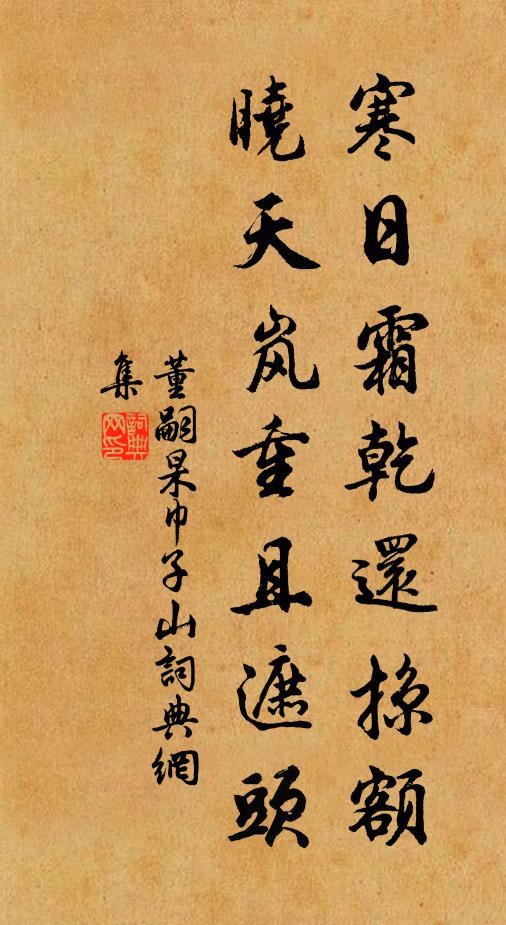 寒日霜乾還掠額
曉天岚重且遮頭
董嗣杲巾子山詞典網
集
詞典
网印